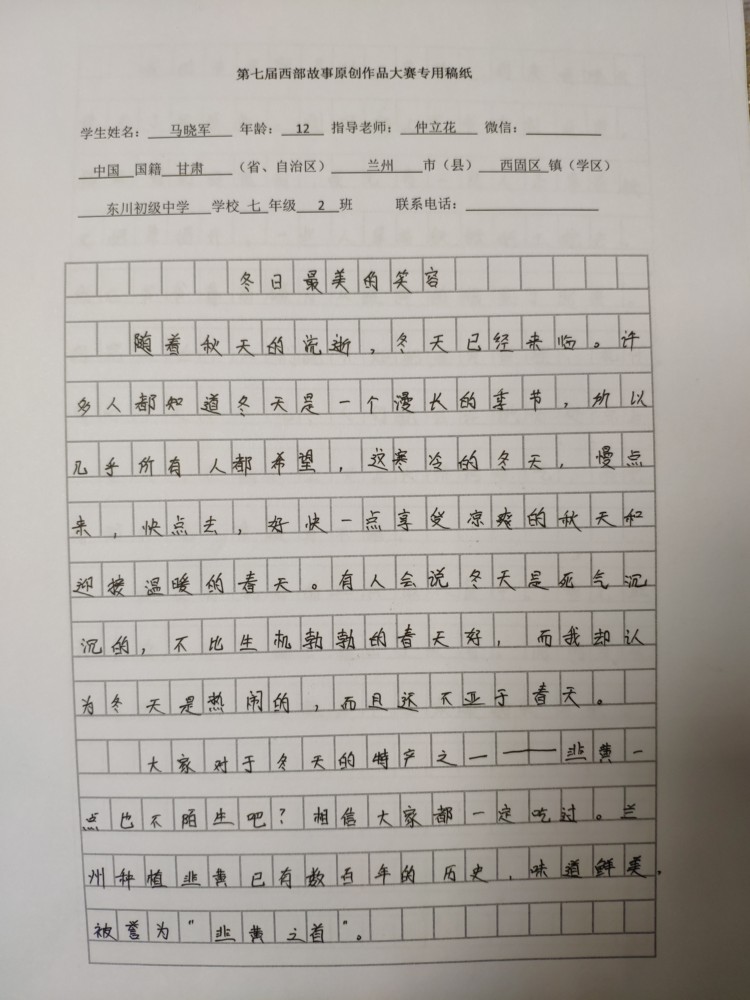 第七届西部故事原创作品大赛专用稿纸
学生姓名：马晓军 年龄：12 指导老师：仲立花 微信：
中国 国籍 甘肃 （省、自治区） 兰州 市（县） 西固区 镇（学区）
东川初级中学 学校 七 年级 2 班 联系电话：
冬日最美的笑容
随着秋天的流逝，冬天已经来临。许
多人都知道冬天是一个漫长的季节，所以
几乎所有人都希望，这寒冷的冬天，慢点
来，快点去，好快一点享受凉爽的秋天和
迎接温暖的春天。有人会说冬天是死气沉
沉的，不比生机勃勃的春天好，而我却认
为冬天是热闹的，而且还不亚于春天。
大家对于冬天的特产之一——韭黄一
点也不陌生吧？相信大家都一定吃过。兰
州种植韭黄已有数百年的历史，味道鲜美，
被誉为"韭黄之首"。